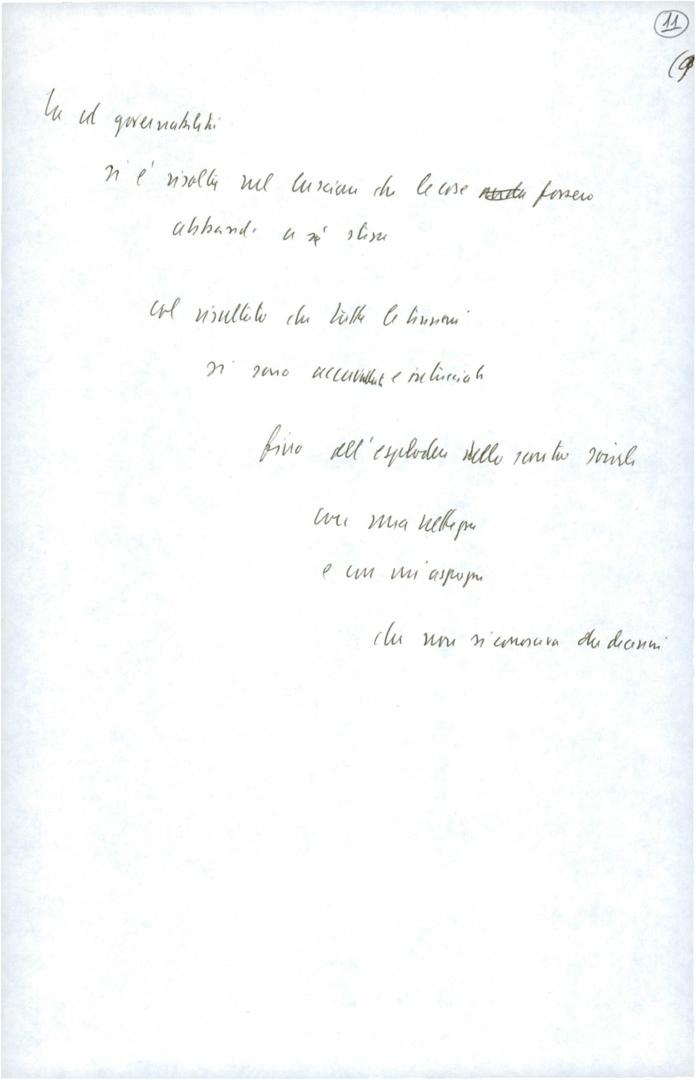 11
(9
La cd governabilità
si è risolta nel lasciare che le cose fossero
abband. a sé stesse
col risultato che tutte le tensioni
si sono accavallate e intrecciate
fino all'esplodere dello scontro sociale
con una nettezza
e un'asprezza
che non si conosceva da decenni